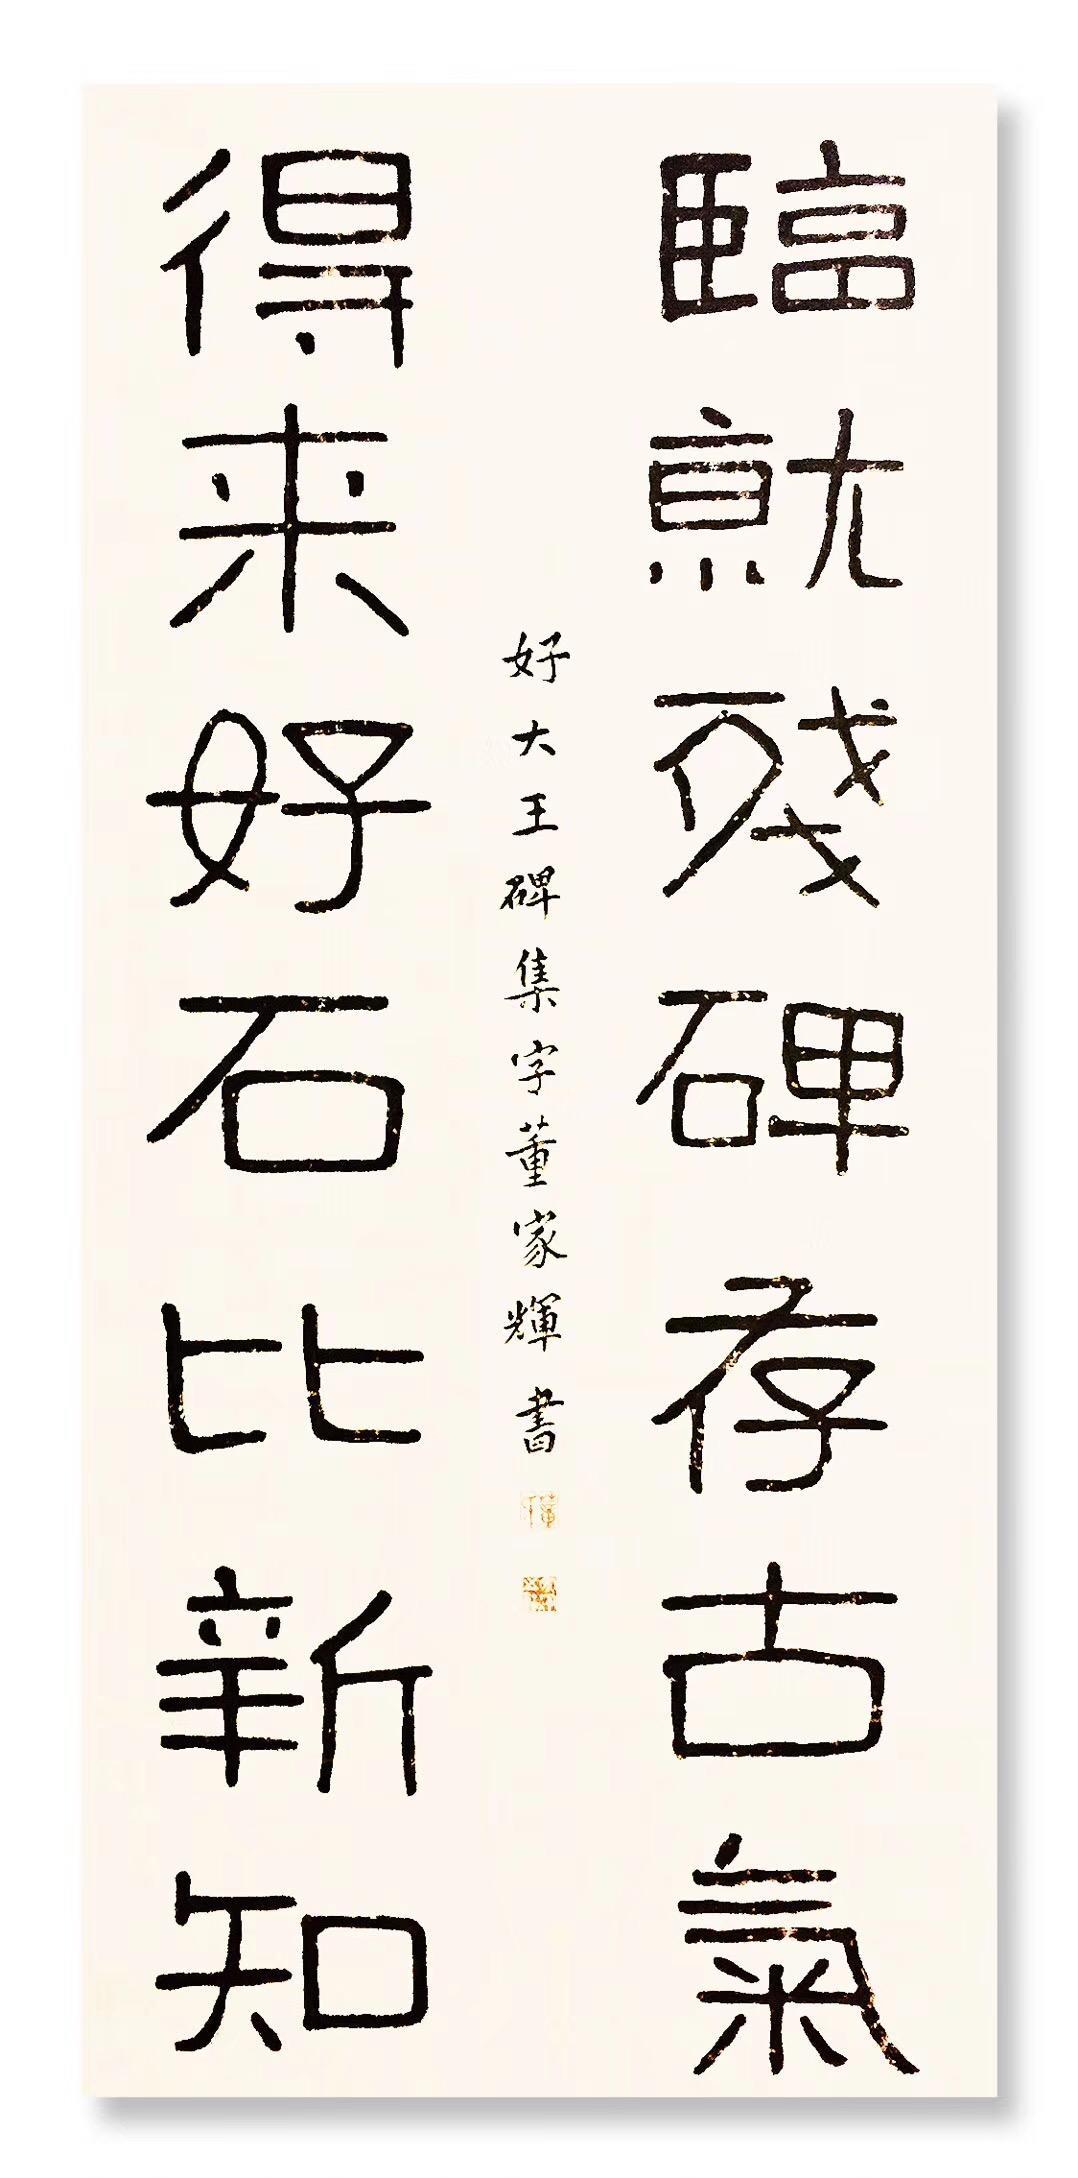 臨就殘碑存古氣
得来好石比新知
好大王碑集字董家輝書